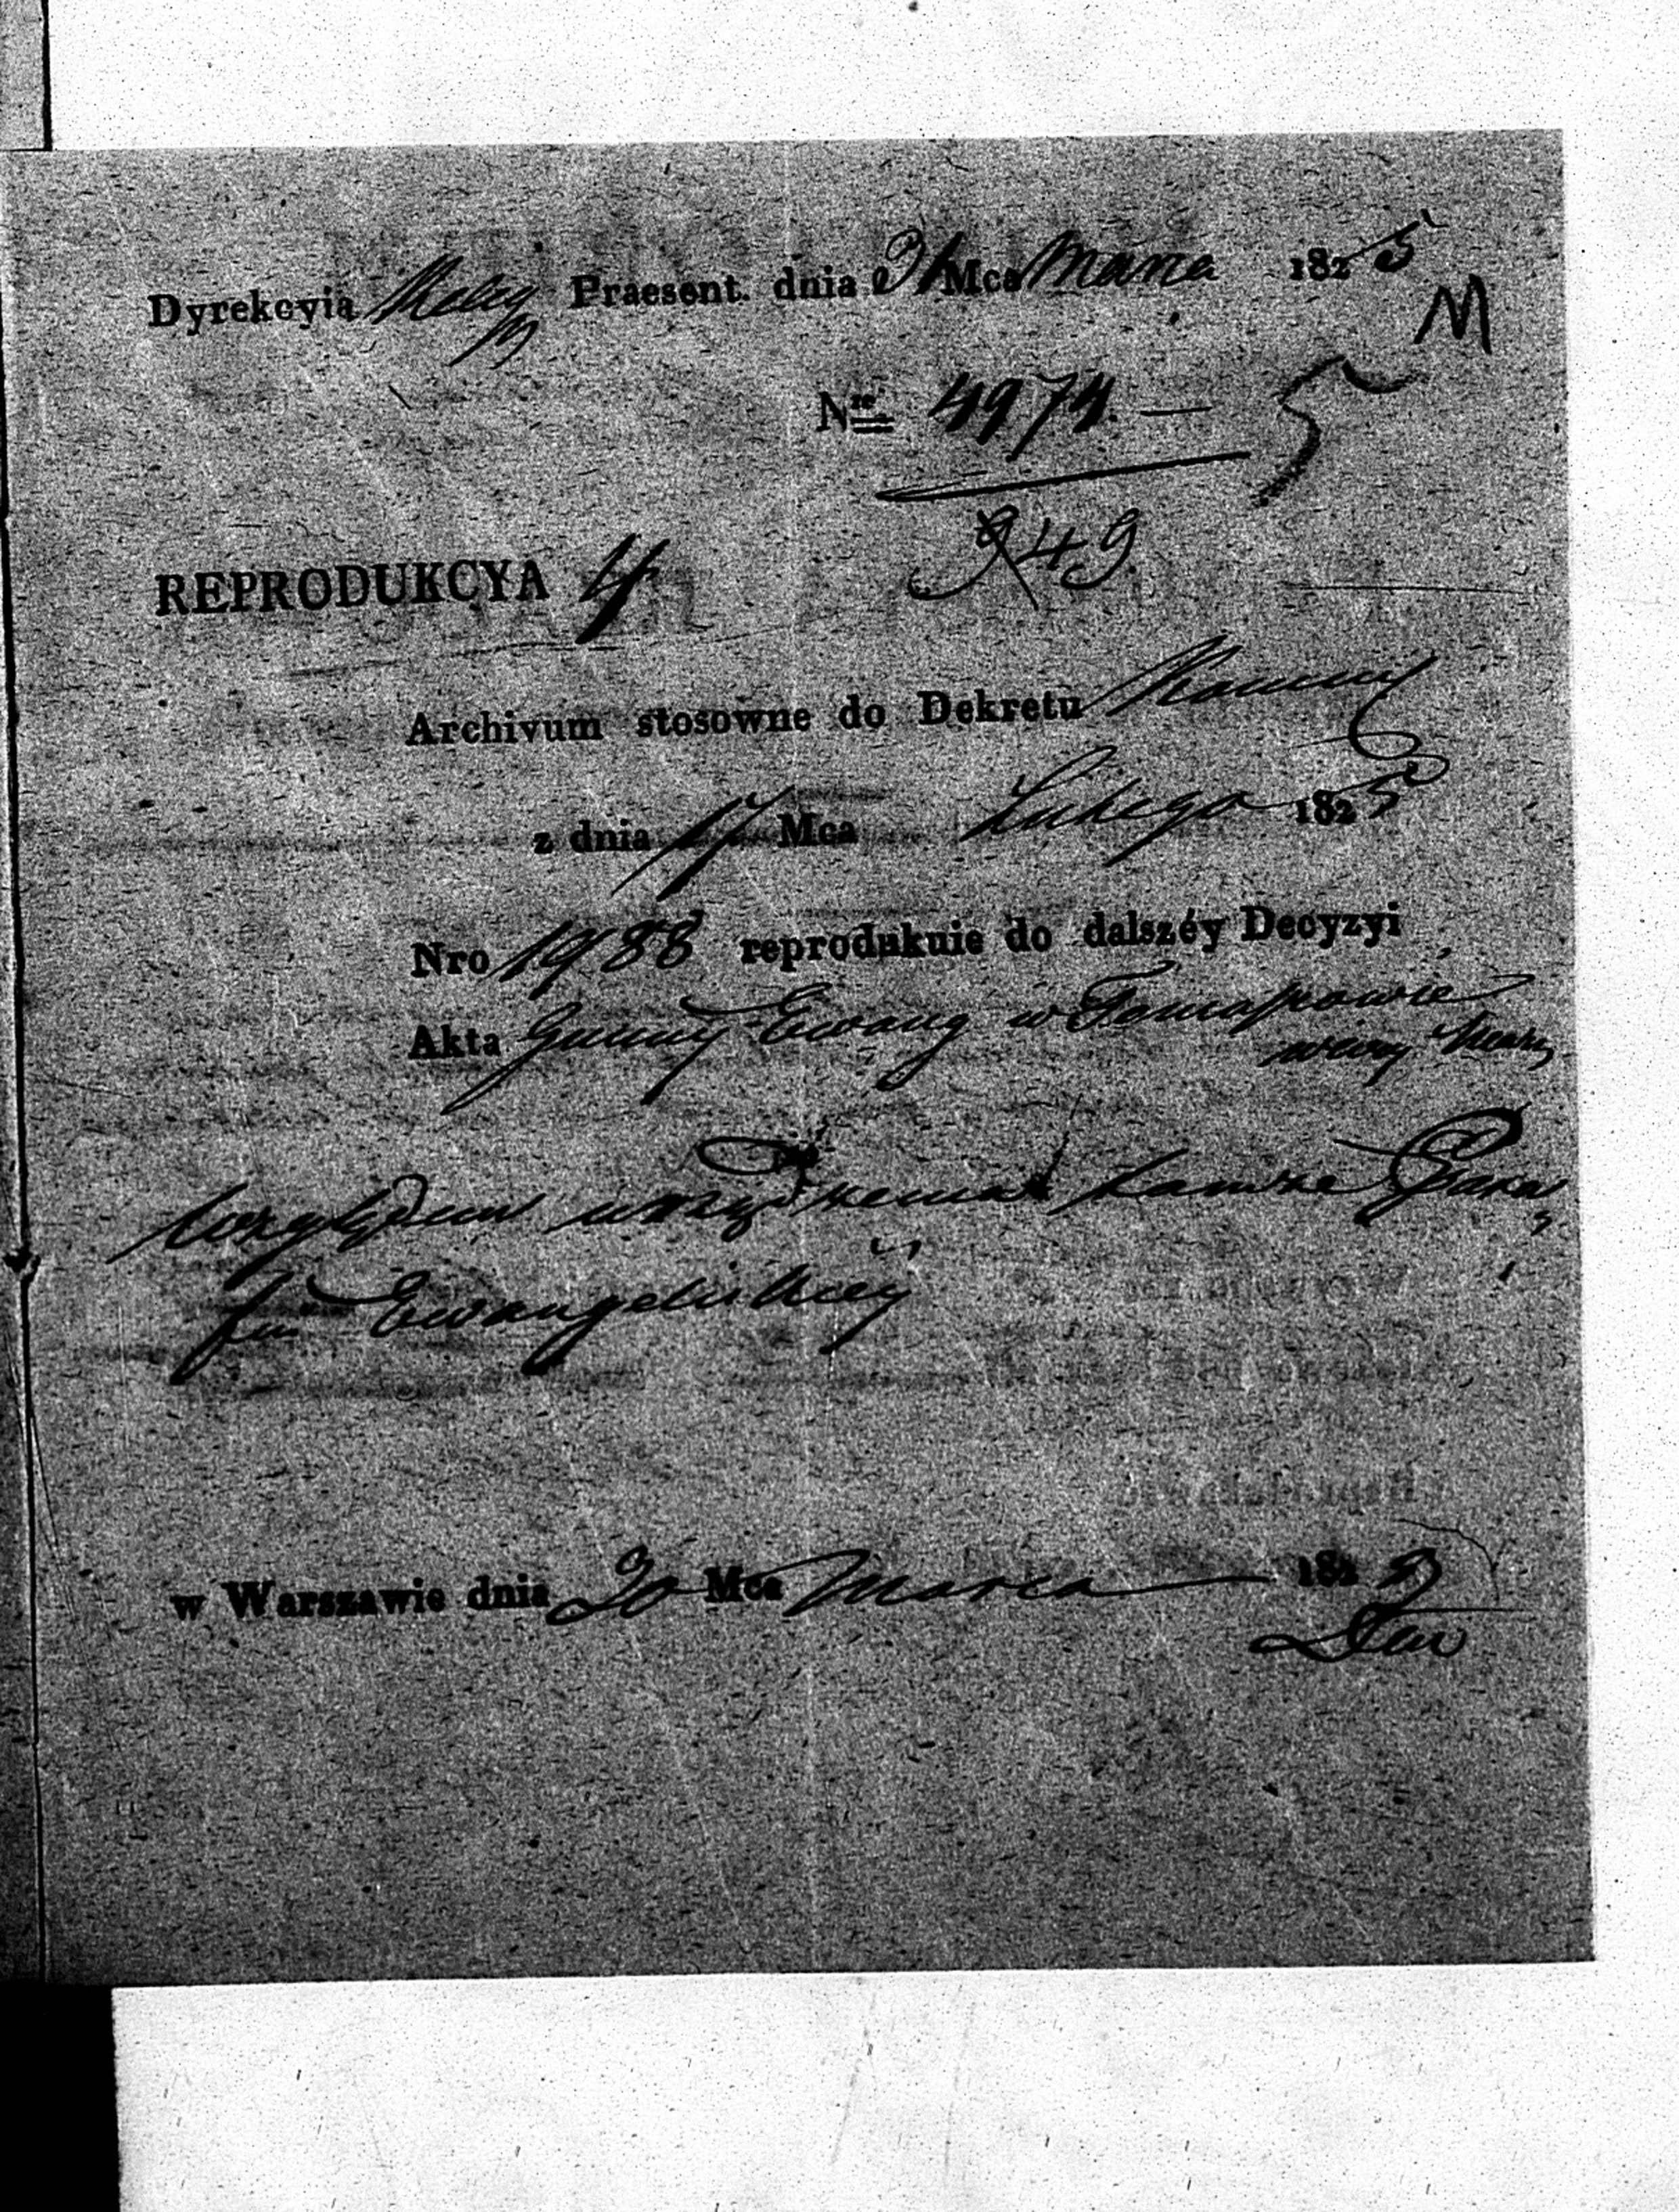 Dyrekcyia Relig Praesent. dnia 31 Mca Marca 1825
M
Nro 4974. —
5
949.
REPRODUKCYA 4
Archivum stosowne do Dekretu Kommiss
z dnia 17 Mca Lutego 1825
Nro 1988 reprodukuie do dalszéy Decyzyi
Akta Gminy Ewang w Tomaszowie
względem urządzenia tamże Para
fii Ewangelickiey
w Warszawie dnia 20 Mca Marca 1825